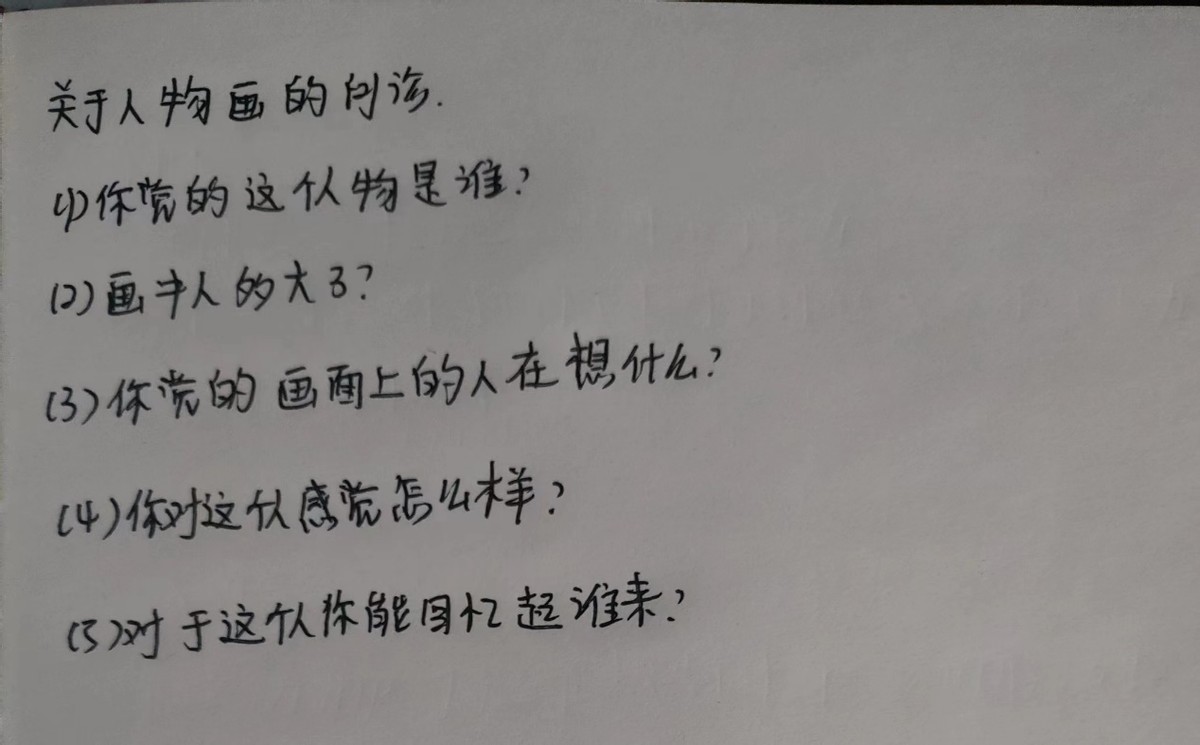 关于人物画的问诊.
(1)你觉的这个人物是谁?
(2)画中人的大了?
(3)你觉的画面上的人在想什么?
(4)你对这个人感觉怎么样?
(5)对于这个人你能回忆起谁来?